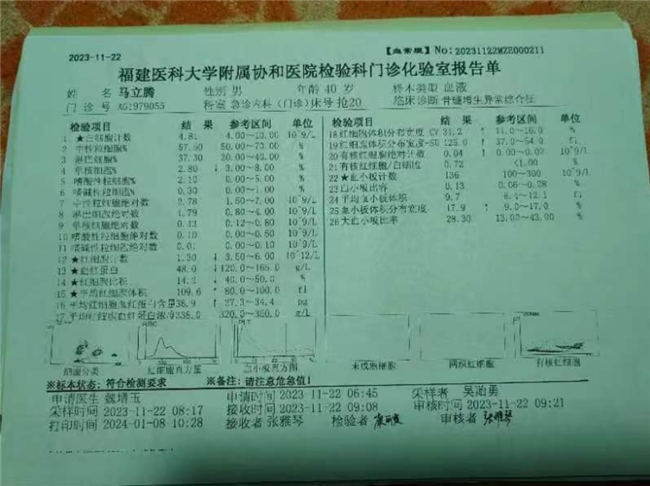 2023-11-22 【血常规】No: 20231122MZE000211
福建医科大学附属协和医院检验科门诊化验室报告单
姓 名 马立腾 性别 男 年龄 40 岁 标本类型 血液
门 诊 号 科室 急诊内科(门诊)床号 抢20 临床诊断 骨髓增生异常综合征
检验项目 结 果 参考区间 单位 检验项目 结 果 参考区间 单位
1 ★白细胞计数 4.81 4.00-10.00 10^9/L 18 红细胞体积分布宽度-CV 31.2 ↑ 11.0-16.0 %
2 中性粒细胞% 50.00-73.00 % 19 红细胞体积分布宽度-SD 125.0 ↑ 37.0-54.0 fL
3 淋巴细胞% 37.30 20.00-40.00 % 20 有核红细胞绝对计数 0.04 ↑ 0.00-0.02 10^9/L
4 单核细胞% 2.80 ↓ 3.00-8.00 % 21 有核红细胞/白细胞 0.72 <1.00 %
5 嗜酸性粒细胞% 2.10 % 22 ★血小板计数 136 100-300 10^9/L
6 嗜碱性粒细胞% 0.30 0.00-1.00 % 23 血小板比容 0.13
7 中性粒细胞绝对数 2.78 10^9/L 24 平均血小板体积 9.7 fL
8 淋巴细胞绝对数 1.79 0.80-4.00 10^9/L 25 血小板体积分布宽度 17.9 ↑ 9.0-17.0 %
9 单核细胞绝对数 0.13 0.12-0.80 10^9/L 26 大血小板比率 28.30 13.00-43.00 %
10 嗜酸性粒细胞绝对数 0.10 10^9/L
11 嗜碱性粒细胞绝对数 0.01 10^9/L
12 ★红细胞计数 ↓ 10^12/L
13 ★血红蛋白 48.0 ↓ 120.0-165.0 g/L
14 ★红细胞比积 ↓ 40.0-50.0 %
15 ★平均红细胞体积 109.6 ↑ 80.0-100.0 fL
16 平均红细胞血红蛋白含量 36.9 ↑ 27.3-34.4 pg
17 平均红细胞血红蛋白浓度 g/L
细胞分类 红细胞直方图 血小板直方图 未成熟细胞 网织红细胞 有核红细胞
※标本状态: 符合检测要求 ※备注: 请注意危急值!
申请医生 魏增玉 申请时间 2023-11-22 06:45 采样者
采样时间 2023-11-22 08:17 接收时间 2023-11-22 09:08 审核时间 2023-11-22 09:21
打印时间 2024-01-08 10:28 接收者 张雅琴 检验者 审核者 张雅琴